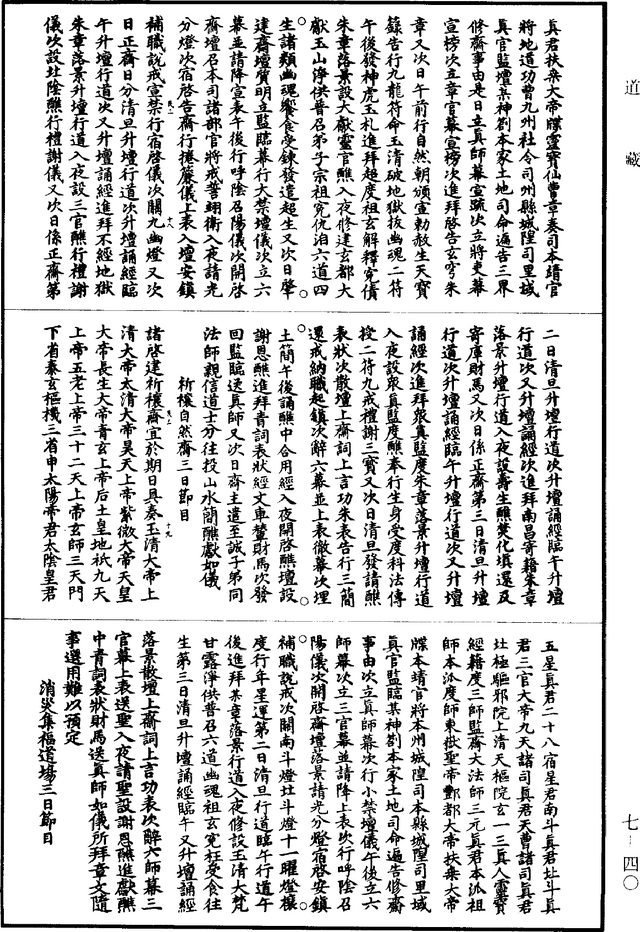 道藏
真君扶桑大帝牒靈寶仙曹章奏司本靖官
將地道功曹九州社令司州縣城隍司里域
真官監壇某神劄本家土地司命遍告三界
修齋事由是日立真師幕宣疏次立將吏幕
宣榜次立章官幕宣榜次進拜啓告玄穹朱
章又次日午前行自然朝頒宣勅赦生天寶
籙告行九龍符命玉清破地獄拔幽魂二符
午後發神虎玉札進拜超度祖玄解釋寃債
朱章落景設大獻靈官醮入夜修建玄都大
獻玉山淨供普召弟子宗祖寃仇洎六道四
生諸類幽魂饗食受鍊發遣超生又次日肇
建齋壇質明立監臨幕行大禁壇儀次立六
幕並請降宣表午後行呼陰召陽儀次開啓
齋壇召本司諸部官將戒誓翊衛入夜請光
分燈次宿啓告齋行捲簾儀上表入壇安鎮
補職說戒宣禁行宿啓儀次關九幽燈又次
日正齋日分清旦升壇行道次升壇誦經臨
午升壇行道次又升壇誦經進拜不經地獄
朱章落景升壇行道入夜設三官醮行禮謝
儀次設北陰醮行禮謝儀又次日係正齋第
二日清旦升壇行道次升壇誦經臨午升壇
行道次又升壇誦經次進拜南昌寄籍朱章
落景升壇行道入夜設壽生醮焚化填還及
寄庫財馬又次日係正齋第三日清旦升壇
行道次升壇誦經臨午升壇行道次又升壇
誦經次進拜眾真監度朱章落景升壇行道
入夜設眾真監度醮奉行生身受度科法傳
授二符九戒禮謝三寶又次日清旦發請醮
表狀次散壇上齋詞上言功朱表告行三簡
還戒納職起鎮次解六幕並上表徹幕次埋
土簡午後誦醮中合用經入夜開啓醮壇設
謝恩醮進拜青詞表狀經文車輦財馬次發
回監臨送真師又次日齋主遣至誠子弟同
法師親信道士分往投山水簡醮獻如儀
祈禳自然齋三日節目
諸啓建祈禳齋宜於期日具奏玉清大帝上
清大帝太清大帝昊天上帝紫微大帝天皇
大帝長生大帝青玄上帝后土皇地祇九天
上帝五老上帝三十二天上帝玄師三天門
下省泰玄樞機三省申太陽帝君太陰皇君
五星真君二十八宿星君南斗真君北斗真
君三官大帝九天諸司真君天曹諸司真君
北極驅邪院上清天樞院玄一三真人靈寶
經籍度三師監齋大法師三元真君本派祖
師本派度師東嶽聖帝酆都大帝扶桑大帝
牒本靖官將本州城隍司本縣城隍司里域
真官監臨某神劄本家土地司命遍告修齋
事由次立真師幕次行小禁壇儀午後立六
師幕次立三官幕並請降上表次行呼陰召
陽儀次開啓齋壇落景請光分燈宿啓安鎮
補職說戒次開南斗燈北斗燈十一曜燈禳
度行年星運第二日清旦行道臨午行道午
後進拜某章落景行道入夜修設玉清大梵
甘露淨供普召六道幽魂祖玄寃枉受食往
生第三日清旦升壇誦經臨午又升壇誦經
落景散壇上齋詞上言功表次辭六師幕三
官幕上表送聖入夜請聖設謝恩醮進獻醮
中青詞表狀財馬送真師如儀所拜章文隨
事選用難以預定
消災集福道場三日節目
七-四〇